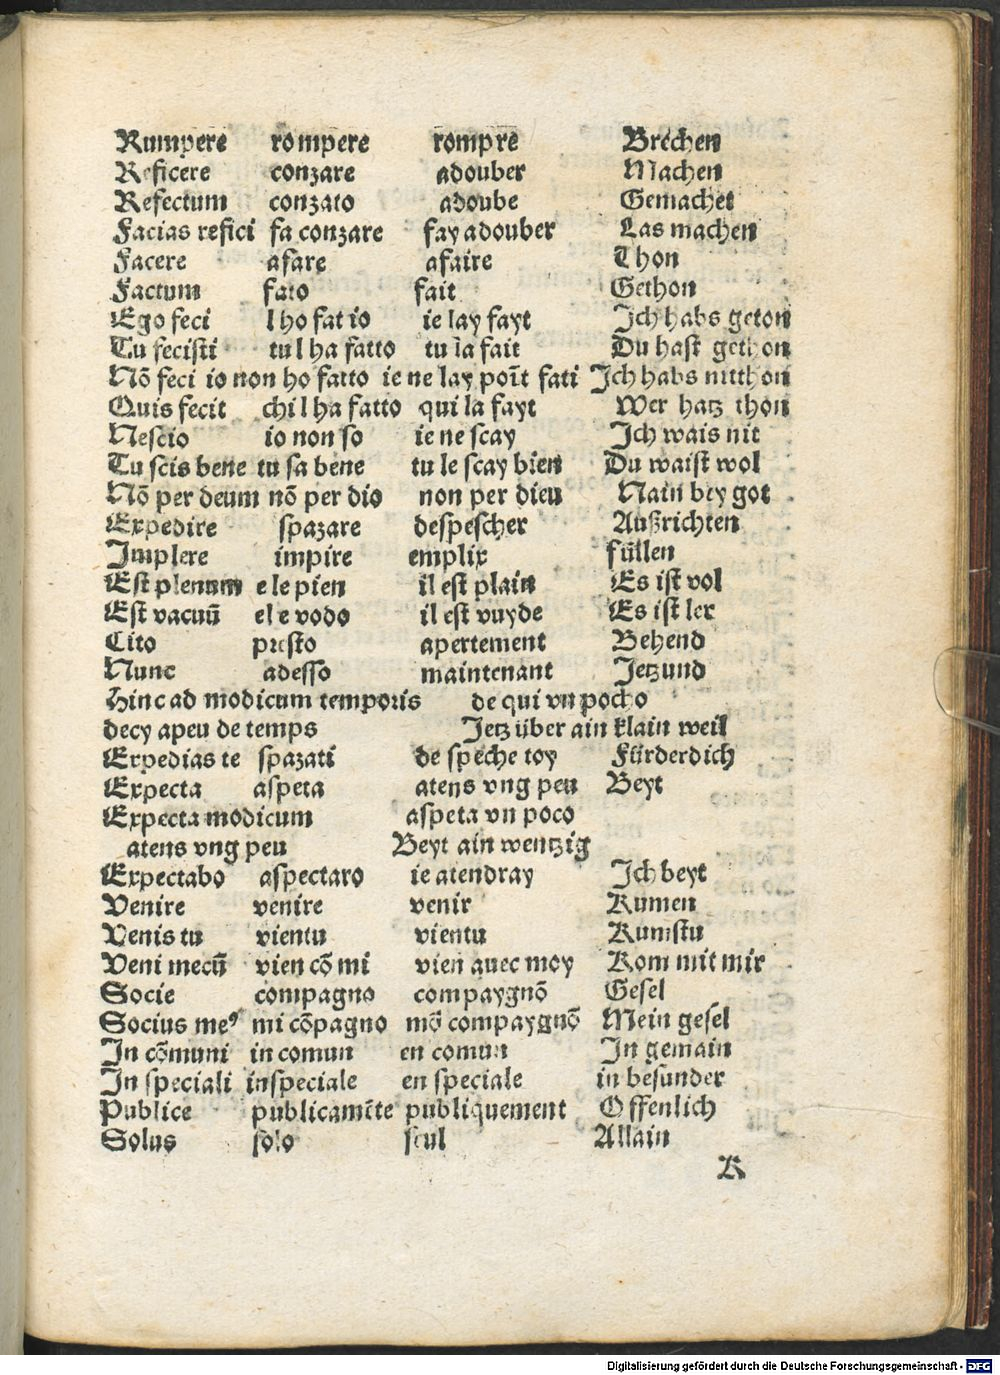 Rumpere rompere rompre Brechen
Reficere conzare adouber Machen
Refectum conzato adoube Gemachet
Facias refici fa conzare fay adouber Las machen
Facere afare afaire Thon
Factum fato fait Gethon
Ego feci l ho fat io ie lay fayt Ich habs geton
Tu fecisti tu l ha fatto tu la fait Du hast gethon
Nō feci io non ho fatto ie ne lay poīt fati Ich habs nitthon
Quis fecit chi l ha fatto qui la fayt Wer hatz thon
Nescio io non so ie ne scay Ich wais nit
Tu scis bene tu sa bene tu le scay bien Du waist wol
Nō per deum nō per dio non per dieu Nain bey got
Expedire spazare despescher Außrichten
Implere impire emplir füllen
Est plenum e le pien il est plain Es ist vol
Est vacuū el e vodo il est vuyde Es ist ler
Cito presto apertement Behend
Nunc adesso maintenant Jetzund
Hinc ad modicum temporis de qui vn pocho
decy apeu de temps Jetz über ain klain weil
Expedias te spazati de speche toy Fürderdich
Expecta aspeta atens vng peu Beyt
Expecta modicum aspeta vn poco
atens vng peu Beyt ain wentzig
Expectabo aspectaro ie atendray Ich beyt
Venire venire venir Kumen
Venis tu vientu vientu Kumstu
Veni mecū vien cō mi vien auec moy Kom mit mir
Socie compagno compaygnō Gesel
Socius meꝰ mi cōpagno mō compaygnō Mein gesel
In cōmuni in comun en comun In gemain
In speciali inspeciale en speciale in besunder
Publice publicamēte publiquement Offenlich
Solus solo seul Allain
K
Digitalisierung gefördert durch die Deutsche Forschungsgemeinschaft - DFG